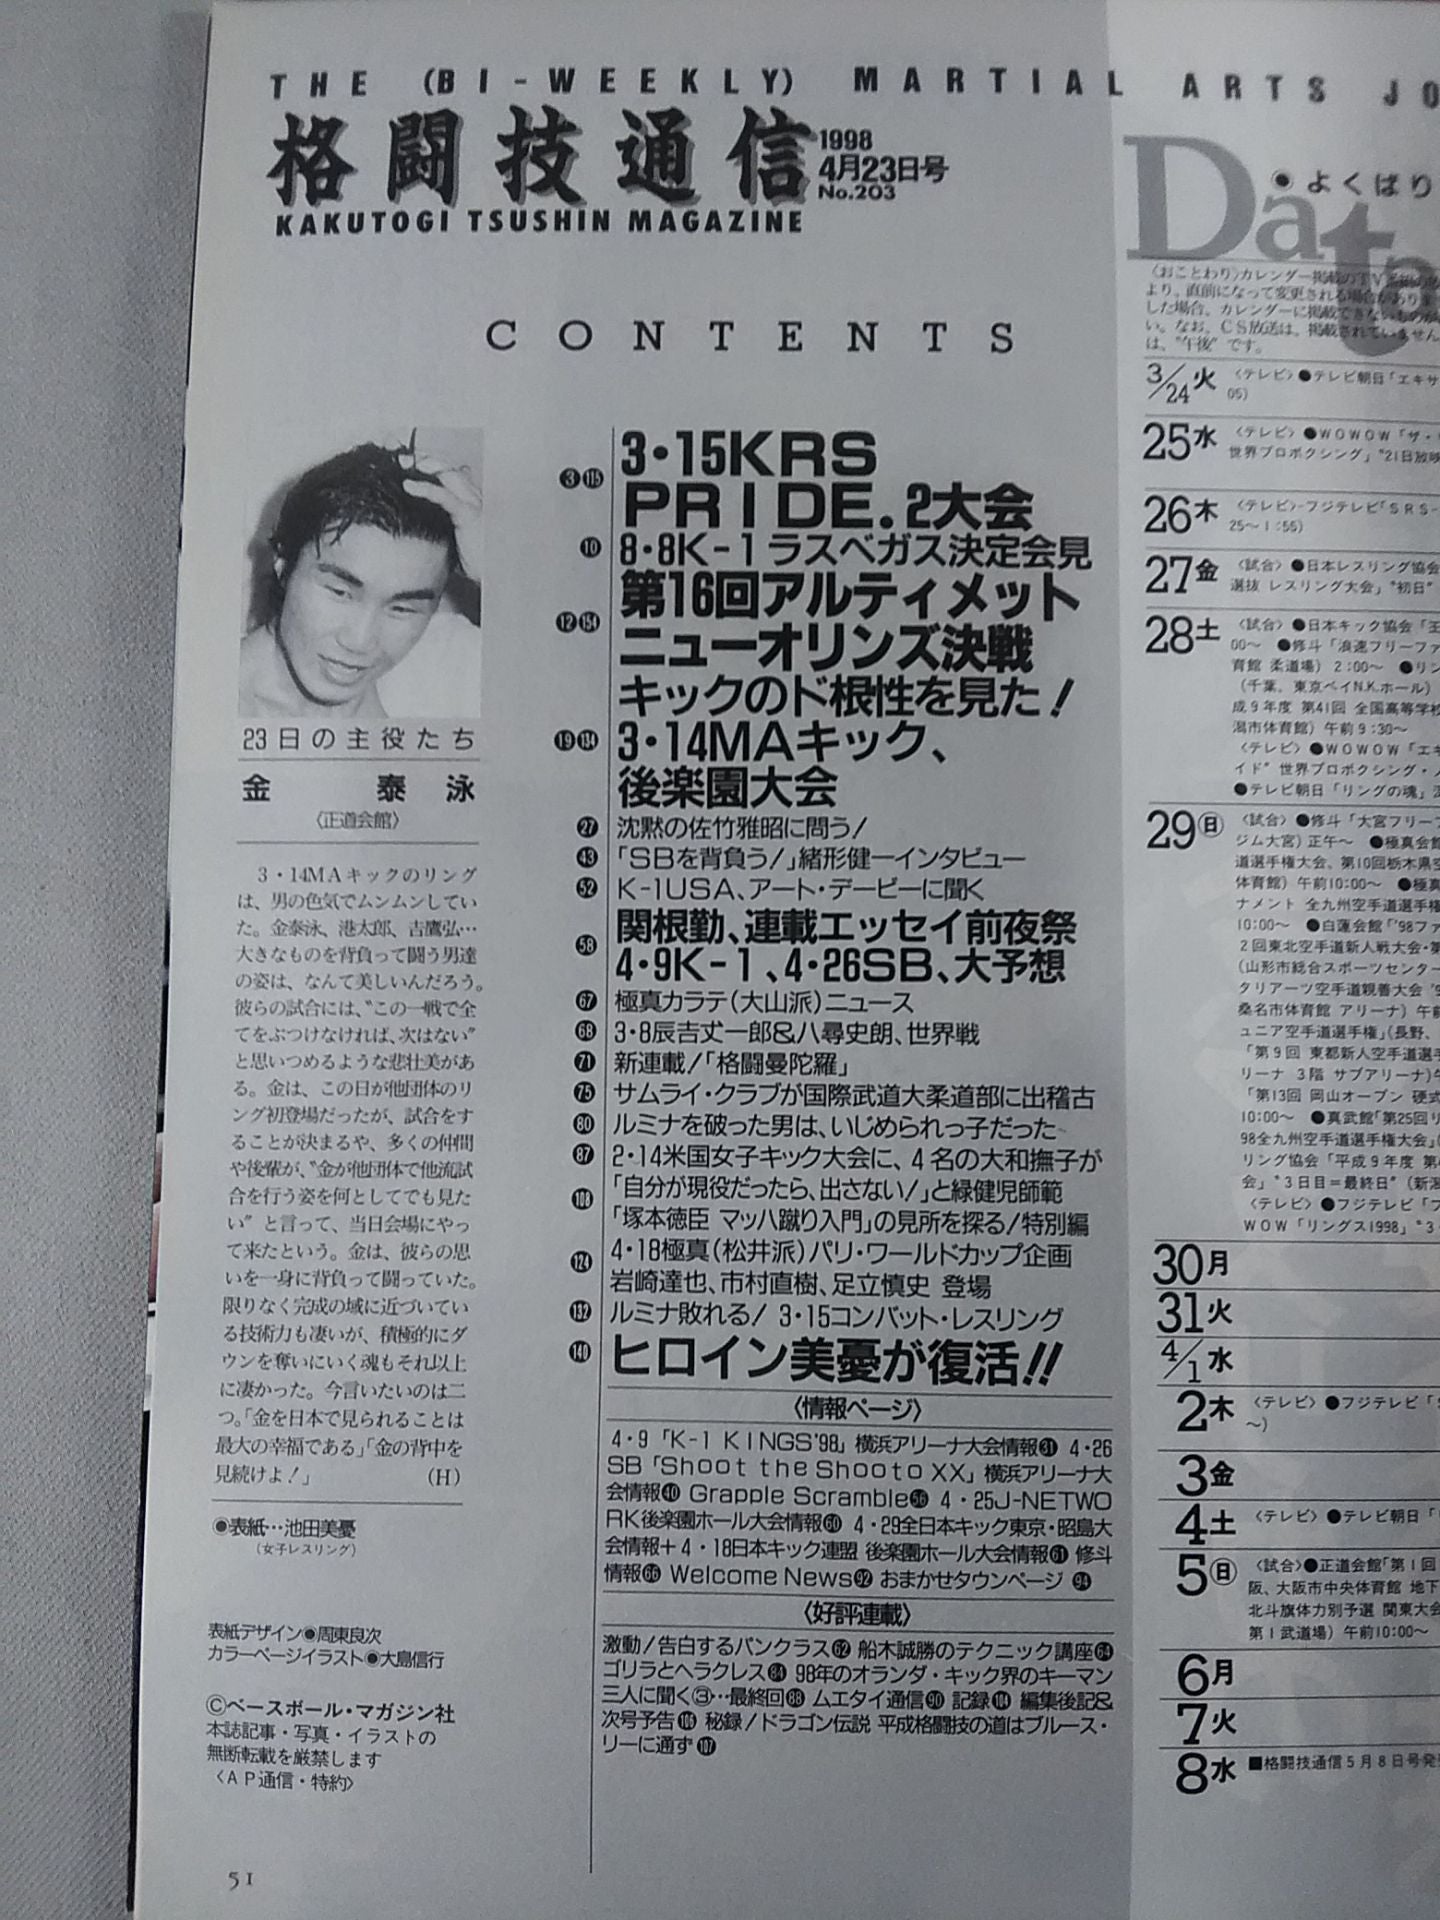 THE (BI-WEEKLY) MARTIAL ARTS JO
格闘技通信
1998
4月23日号
No.203
KAKUTOGI TSUSHIN MAGAZINE
CONTENTS
23日の主役たち
金 泰 泳
〈正道会館〉
3・14MAキックのリング
は、男の色気でムンムンしてい
た。金泰泳、港太郎、吉鷹弘…
大きなものを背負って闘う男達
の姿は、なんて美しいんだろう。
彼らの試合には、〝この一戦で全
てをぶつけなければ、次はない〟
と思いつめるような悲壮美があ
る。金は、この日が他団体のリ
ング初登場だったが、試合をす
ることが決まるや、多くの仲間
や後輩が、〝金が他団体で他流試
合を行う姿を何としてでも見た
い〟と言って、当日会場にやっ
て来たという。金は、彼らの思
いを一身に背負って闘っていた。
限りなく完成の域に近づいてい
る技術力も凄いが、積極的にダ
ウンを奪いにいく魂もそれ以上
に凄かった。今言いたいのは二
つ。「金を日本で見られることは
最大の幸福である」「金の背中を
見続けよ！」 (H)
◉表紙…池田美憂
(女子レスリング)
表紙デザイン●周東良次
カラーページイラスト●大島信行
©ベースボール・マガジン社
本誌記事・写真・イラストの
無断転載を厳禁します
〈AP通信・特約〉
51
3 115 3・15KRS
PRIDE.2大会
10 8・8K-1ラスベガス決定会見
12 154 第16回アルティメット
ニューオリンズ決戦
キックのド根性を見た！
19 134 3・14MAキック、
後楽園大会
27 沈黙の佐竹雅昭に問う！
43 「SBを背負う！」緒形健一インタビュー
52 K-1USA、アート・デービーに聞く
58 関根勤、連載エッセイ前夜祭
4・9K-1、4・26SB、大予想
67 極真カラテ(大山派)ニュース
68 3・8辰吉丈一郎&八尋史朗、世界戦
71 新連載！「格闘曼陀羅」
75 サムライ・クラブが国際武道大柔道部に出稽古
80 ルミナを破った男は、いじめられっ子だった
87 2・14米国女子キック大会に、4名の大和撫子が
108 「自分が現役だったら、出さない！」と緑健児師範
「塚本徳臣 マッハ蹴り入門」の見所を探る！特別編
124 4・18極真(松井派)パリ・ワールドカップ企画
岩崎達也、市村直樹、足立慎史 登場
132 ルミナ敗れる！ 3・15コンバット・レスリング
140 ヒロイン美憂が復活!!
〈情報ページ〉
4・9「K-1 KINGS'98」横浜アリーナ大会情報31 4・26
SB「Shoot the Shooto XX」横浜アリーナ大
会情報40 Grapple Scramble56 4・25J-NETWO
RK後楽園ホール大会情報60 4・29全日本キック東京・昭島大
会情報+4・18日本キック連盟 後楽園ホール大会情報61 修斗
情報66 Welcome News92 おまかせタウンページ 94
〈好評連載〉
激動！告白するパンクラス62 船木誠勝のテクニック講座64
ゴリラとヘラクレス84 98年のオランダ・キック界のキーマン
三人に聞く③…最終回88 ムエタイ通信90 記録104 編集後記&
次号予告106 秘録！ドラゴン伝説 平成格闘技の道はブルース・
リーに通ず107
Data
●よくばり
〈おことわり〉カレンダー掲載のTV
より、直前になって変更される場合がありま
した場合、カレンダーに掲載できないものが
い。なお、CS放送は、掲載されていません
は、〝午後〟です。
3/24火 〈テレビ〉●テレビ朝日「エキサ
05)
25水 〈テレビ〉●WOWOW「ザ・
世界プロボクシング」〝21日放映
26木 〈テレビ〉・フジテレビ「SRS-
25〜1:55)
27金 〈試合〉●日本レスリング協会
選抜 レスリング大会」〝初日〟
28土 〈試合〉●日本キック協会「王
00〜 ●修斗「浪速フリーファ
育館 柔道場) 2:00〜 ●リン
(千葉、東京ベイN.K.ホール)
成9年度 第41回 全国高等学校
潟市体育館) 午前9:30〜
〈テレビ〉●WOWOW「エキ
イド〟世界プロボクシング・
●テレビ朝日「リングの魂」
29日 〈試合〉●修斗「大宮フリーフ
ジム大宮) 正午〜 ●極真会館
道選手権大会、第10回栃木県空
体育館) 午前10:00〜 ●極真
ナメント 全九州空手道選手権
10:00〜 ●白蓮会館「'98ファ
2回東北空手道新人戦大会・第
(山形市総合スポーツセンター
クリアーツ空手道親善大会 '9
桑名市体育館 アリーナ) 午前
ュニア空手道選手権」(長野、
「第9回 東都新人空手道選手
リーナ 3階 サブアリーナ)午
「第13回 岡山オープン 硬式
10:00〜 ●真武館「第25回リ
98全九州空手道選手権大会」(
リング協会「平成9年度 第
会」〝3日目=最終日〟(新潟
〈テレビ〉●フジテレビ「フ
WOW「リングス1998」〝3・
30月
31火
4/1水
2木 〈テレビ〉●フジテレビ「S
〜)
3金
4土 〈テレビ〉●テレビ朝日「
5日 〈試合〉●正道会館「第1回
阪、大阪市中央体育館 地下
北斗旗体力別予選 関東大会
第1武道場) 午前10:00〜
6月
7火
8水 ■格闘技通信5月8日号発